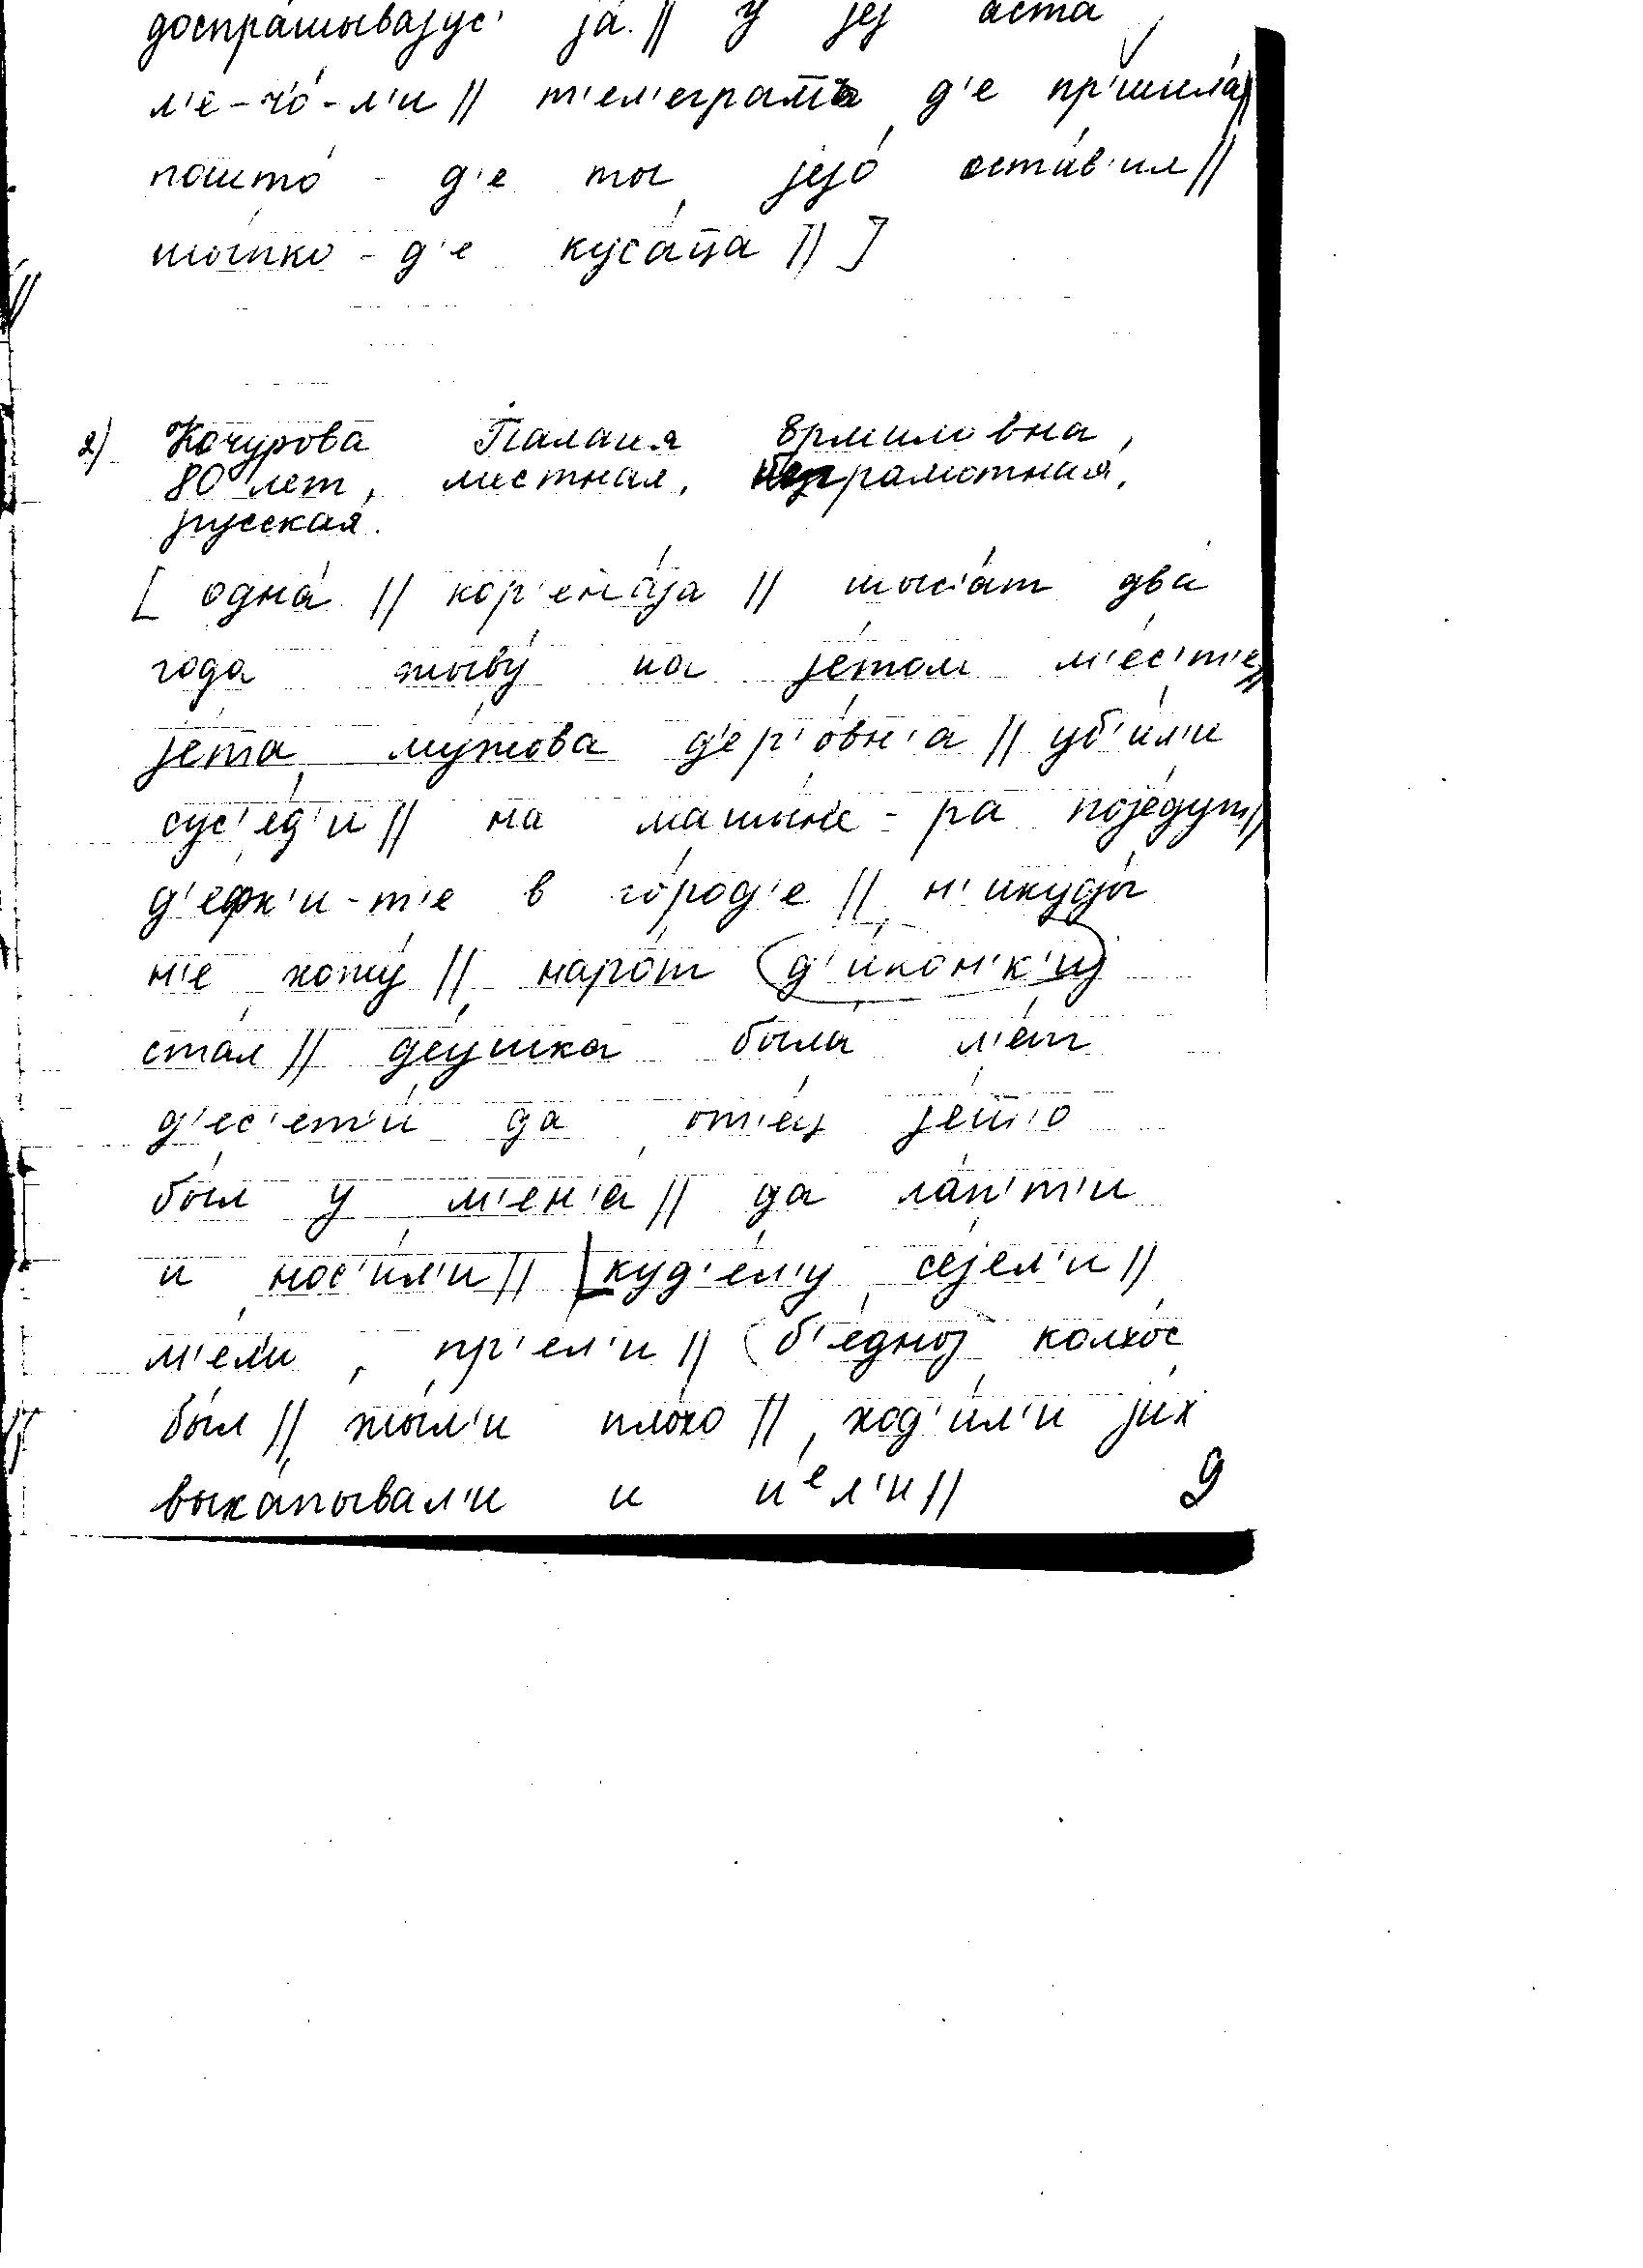 доспра́шывајус' ја́ // у јеј аста
л'е-чо́-л'и // т'ел'еграм̄а д'е пр'ишла́ //
пошто́ - д'е ты јејо́ оста́в'ил //
шы́пко - д'е куса́ц̄а // ]
2) Кочурова Палания Ермиловна,
80 лет, местная, безграмотная,
русская.
[ одна́ // кор'ена́ја // шыс'а́т два́
года жыву́ на је́том м'е́с'т'е //
је́та му́жова д'ер'о́вн'а // уб'и́л'и
сус'е́д'и // на машы́н'е - ра поје́дут //
д'е́фк'и-т'е в го́род'е // н'икуды́
н'е хожу́ // наро́т д'и́кон'к'иј
ста́л // де́ушка была́ л'е́т
д'ес'ет'и́ да от'е́ц јешт'о
бы́л у м'ен'а́ // да ла́п'т'и
и нос'и́л'и // куд'е́л'у се́јел'и //
м'е́ли, пр'е́л'и // б'е́дној колхо́с
бы́л // жы́л'и пло́хо // ход'и́л'и јих
выка́пывал'и и иел'и // 9